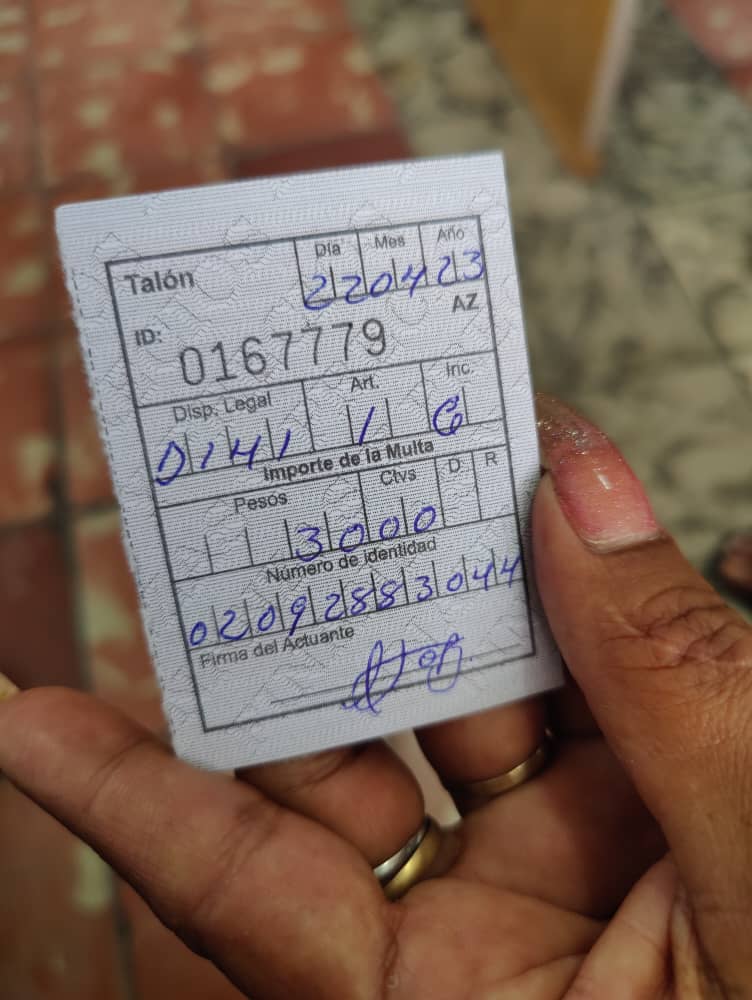 Talón Día Mes Año
22 04 23
ID: AZ
0167779
Disp. Legal Art. Inc.
D141 1 G
Importe de la Multa
Pesos Ctvs D R
30 00
Número de identidad
02092883044
Firma del Actuante